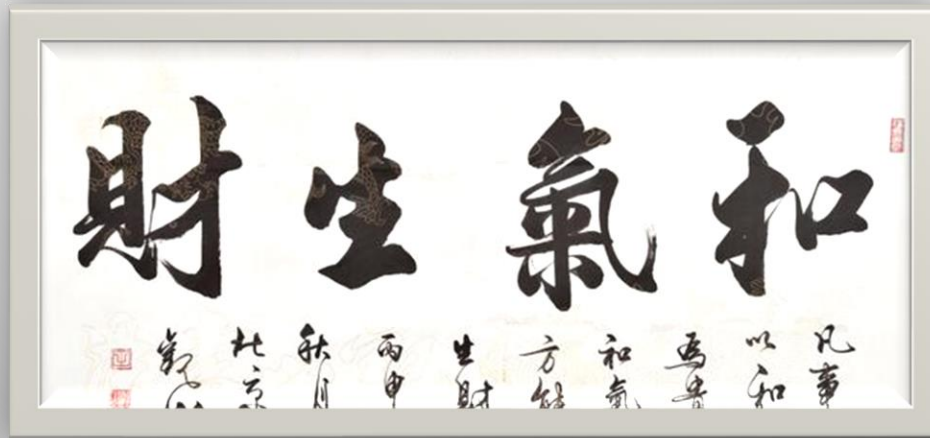 和氣生財
凡事
以和
為貴
和氣
方能
生財
丙申
秋月
北京